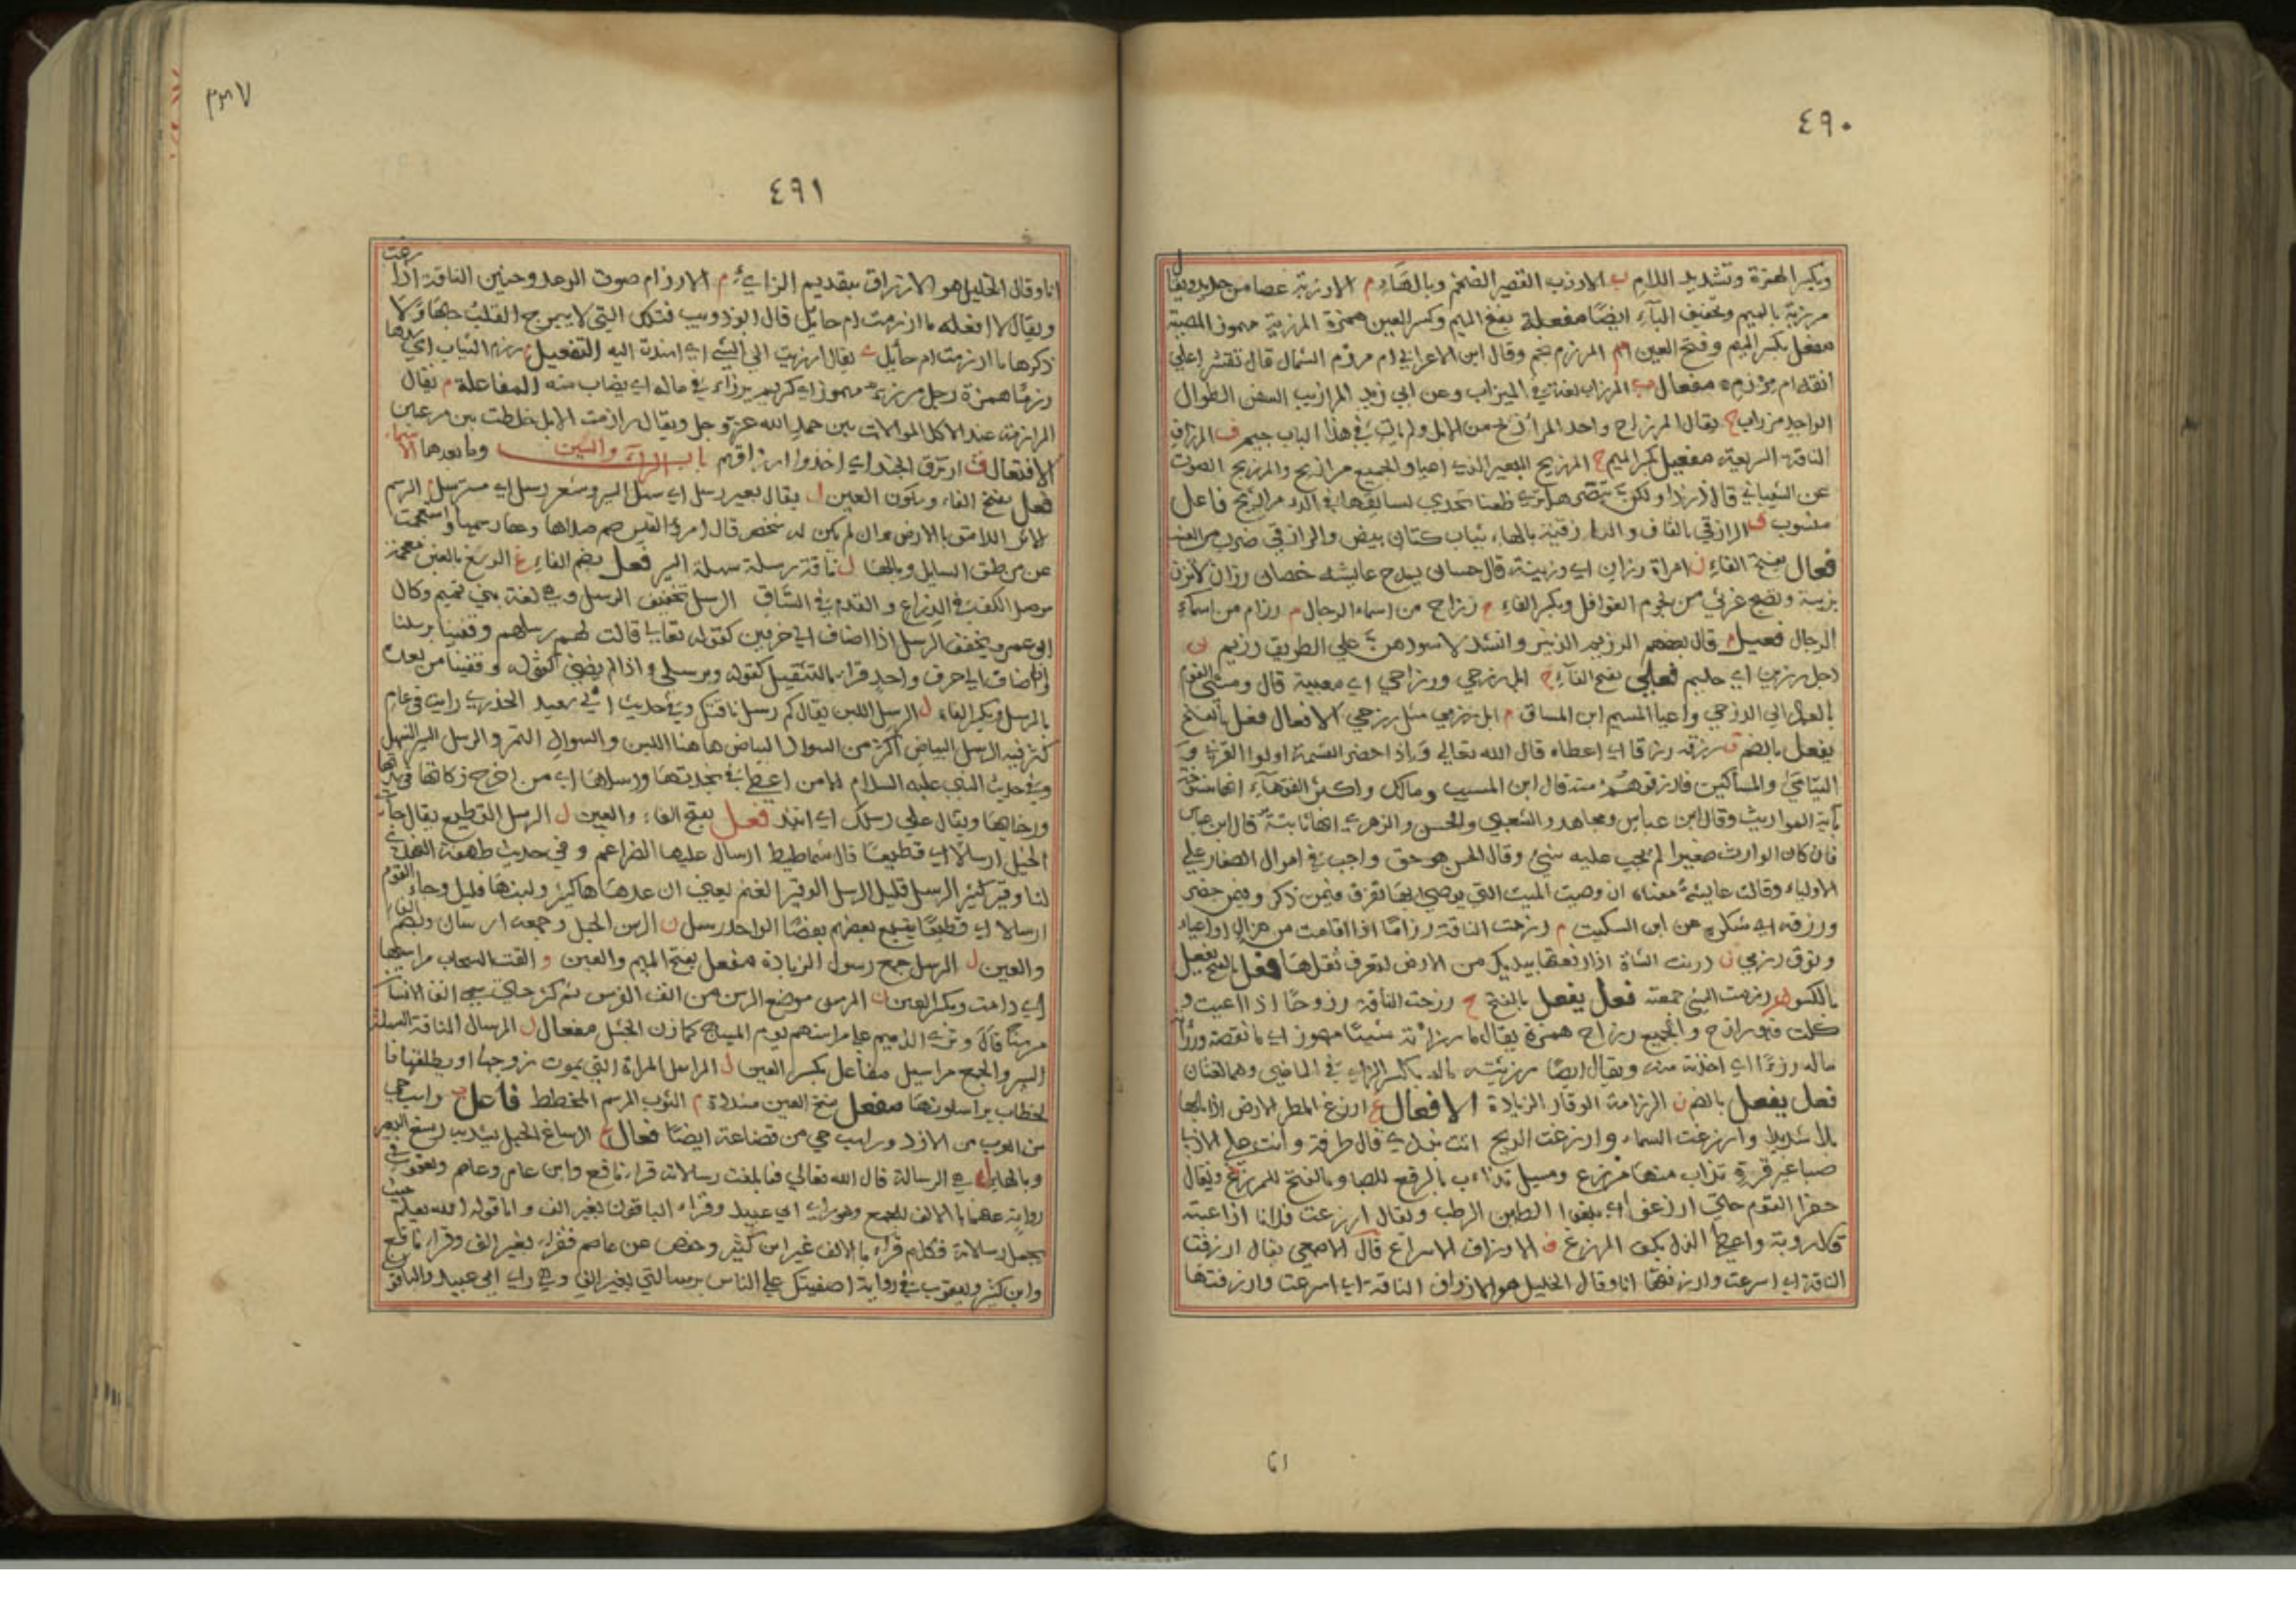 ٤٩٠
وبكسر الهمزة وتشديد اللام ب الارزب القصير الضخم وبالهاء م الارزبة عصا من حديد ويقال
مرزبة بالميم وتخفيف الباء ايضًا مفعلة بفتح الميم وكسر العين همزة المرزئة مهموز المصيبة
مفعل بكسر الميم وفتح العين م المرزم نجم وقال ابن الاعرابي ام مرزم الشمال قال
ام مرزم مفعال ب المرزاب لغة في الميزاب وعن ابي زيد المرازيب السفن الطوال
الواحد مرزاب ح يقال المرزاح واحد المرازيح من الابل ولم يات في هذا الباب جيم ف المرزاف
الناقة السريعة مفعيل بكسر الميم ح المرزيح البعير الذي اعيا والجميع مرازيح والمرزيح الصوت
عن الشيباني قال ذر ذا ولكن تبصر هل ترى ظعنا تحدى لساقتها في الدو مرزيح فاعل
منسوب ق الرازقي بالقاف والرازقية بالهاء ثياب كتان بيض والرازقي ضرب من العنب
فعال بفتح الفاء ن امراة رزان اي رزينة قال حسان يمدح عايشه حصان رزان لا تزن
بريبة وتصبح غرثى من لحوم الغوافل وبكسر الفاء ح رزاح من اسماء الرجال م رزام من اسماء
الرجال فعيل م قال بعضهم الرزيم الزئير وانشد لاسودهن على الطريق رزيم ن
رجل رزين اي حليم فعلى بفتح الفاء ح ابل رزحى ورزاحى اي معيية قال ومشى القوم
بالعماد الى الرزحى واعيا المسيم اين المساق م ابل رزمى مثل رزحى الافعال فعل بالفتح
يفعل بالضم ق رزقه رزقا اي اعطاه قال الله تعالى واذا حضر القسمة اولوا القربى و
اليتامى والمساكين فارزقوهم منه قال ابن المسيب ومالك واكثر الفقهاء انها منسوخة
بآية المواريث وقال ابن عباس ومجاهد والشعبي والحسن والزهري انها ثابتة قال ابن عباس
فان كان الوارث صغيرا لم يجب عليه شيء وقال الحسن هو حق واجب في اموال الصغار على
الاولياء وقالت عايشة معناه ان وصيت الميت التي يوصي بها تفرق فيمن ذكر وفيمن حضر
ورزقه اي شكره عن ابن السكيت م رزمت الناقة رزاما اذا اقامت من هزال او اعياء
ونوق رزمى ن رزنت الشاة اذا رفعتها بيدك من الارض لتعرف ثقلها فعل بالفتح يفعل
بالكسر م رزمت الشيء جمعته فعل يفعل بالفتح ح رزحت الناقة رزوحًا اذا اعيت و
كلت فهو رازح والجميع رزاح همزة يقال ما رزاته شيئا مهموز اي ما نقصته ورزأ
ماله رزءًا اي اخذت منه ويقال ايضا رزئته ماله بكسر الزاي في الماضي وهما لغتان
فعل يفعل بالضم ن الرزانة الوقار الزيادة الافعال غ ارزغ المطر الارض اذا بلها
بلا شديدا وارزغت السماء وارزغت الريح اتت بندى قال طرفة وانت على الادنى
صبا غير قرة تذاب منها مرزغ ومسيل تذاءب بالرفع للصبا وبالفتح للمرزغ ويقال
حفر القوم حتى ارزغوا اي بلغوا الطين الرطب ويقال ارزغت فلانا اذا عبته
قال روبة واعطى الذل بكف المرزغ ف الارزاف الاسراع قال الاصمعي يقال ارزفت
الناقة اي اسرعت وارزفتها انا وقال الخليل هو الازراف الناقة اي اسرعت وارزفتها
٤٩١
انا وقال الخليل هو الازراف بتقديم الزاي م الارزام صوت الرعد وحنين الناقة اذا رغت
ويقال لا افعله ما ارزمت ام حايل قال ابو ذويب فتلك التي لا يبرح القلب حبها ولا
ذكرها ما ارزمت ام حايل ي يقال ارزيت الى الشيء اي اسندت اليه التفعيل م رزم الثياب اي شدها
رزمًا همزة رجل مرزء مهموز اي كريم يرزاء في ماله اي يصاب منه المفاعلة م يقال
المرازمة عند الاكل الموالات بين حمد الله عز وجل ويقال رازمت الابل خلطت بين مرعيين
الافتعال ق ارتزق الجند اي اخذوا ارزاقهم باب الراء والسين وما بعدهما الاسماء
فعل بفتح الفاء وسكون العين ل يقال بعير رسل اي سهل السير وشعر رسل اي مسترسل م الرسم
الاثر اللاصق بالارض وان لم يكن له شخص قال امرؤ القيس صم صداها وعفا رسمها واستعجمت
عن منطق السايل وبالهاء ل ناقة رسلة سهلة السير فعل بضم الفاء غ الرسغ بالغين معجمة
موصل الكف في الذراع والقدم في الساق الرسل تخفيف الرسل وهي لغة بني تميم وكان
ابو عمرو يخفف الرسل اذا اضاف الى حرفين كقوله تعالى قالت لهم رسلهم وقفينا برسلنا
واذا ضاف الى حرف واحد قراء بالتثقيل كقوله وبرسلي واذا لم يضف كقوله وقفينا من بعده
بالرسل وبكسر الفاء ل الرسل اللبن يقال كم رسل ناقتك وفي حديث ابي سعيد الخدري رايت في عام
كثر فيه الرسل البياض اكثر من السواد البياض هاهنا اللبن والسواد التمر والرسل السير السهل
وفي حديث النبي عليه السلام الا من اعطى في نجدتها ورسلها اي من اخرج زكاتها في شدتها
ورخاها ويقال على رسلك اي اتئد فعل بفتح الفاء والعين ل الرسل القطيع يقال جات
الخيل ارسالا اي قطيعا قال شماطيط ارسال عليها الضراعم وفي حديث طهفة النهدي
لنا وقير كثير الرسل قليل الرسل الوقير الغنم يعني ان عددها كثير ولبنها قليل وجاء القوم
ارسالا اي قطيعا يتبع بعضهم بعضًا الواحد رسل ن الرسن الحبل وجمعه ارسان وبضم الفاء
والعين ل الرسل جمع رسول الزيادة مفعل بفتح الميم والعين و القت السحاب مراسيها
اي دامت وبكسر العين ن المرسن موضع الرسن من انف الفرس ثم كثر حتى سمي انف الانسان
مرسنًا قال وترى الذميم على مراسنهم يوم الهياج كمازن الجثل مفعال ل المرسال الناقة السهلة
السير والجمع مراسيل مفاعل بكسر العين ل المراسل المراة التي يموت زوجها او يطلقها فا
لخطاب يراسلونها مفعل بفتح العين مشددة م الثوب المرسم المخطط فاعل ب راسب حي
من العرب من الازد وراسب حي من قضاعة ايضًا فعال غ الرساغ الحبل يشد به رسغ البعير
وبالهاء ل هي الرسالة قال الله تعالى فما بلغت رسالاته قراء نافع وابن عامر وعاصم ويعقوب في
رواية عنهما بالالف للجمع وهو راي ابي عبيد وقراء الباقون بغير الف واما قوله الله يعلم حيث
يجعل رسالاته فكلهم قراء بالالف غير ابن كثير وحفص عن عاصم فقراء بغير الف وقراء نافع
وابن كثير ويعقوب في رواية اصفيتك على الناس برسالتي بغير الف وهي راي ابي عبيد والباقو